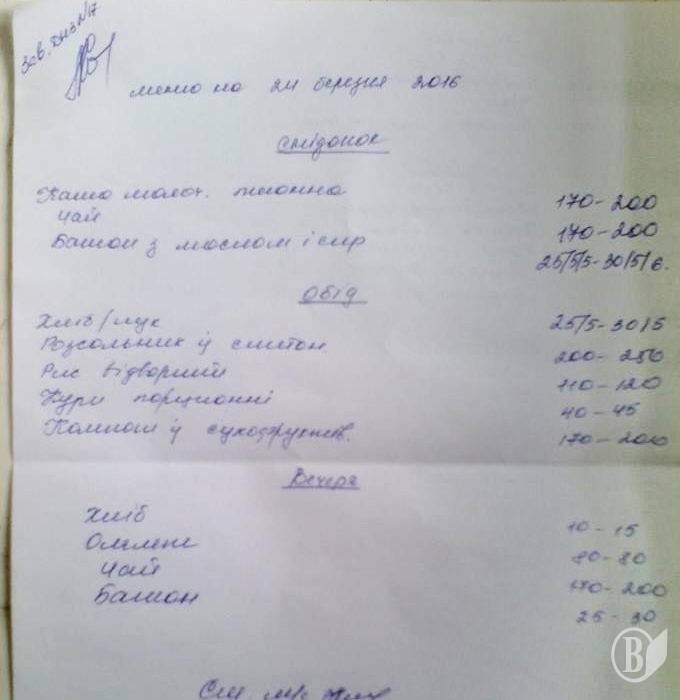 Зав. ДНЗ №17
меню на 24 березня 2016
Сніданок
Каша молоч. пшонна 170-200
Чай 170-200
Батон з маслом і сир 25/5/5-30/5/6.
Обід
Хліб/лук 25/5-30/5
Розсольник із сметан. 200-250
Рис відворний 110-120
Кури порционні 40-45
Компот із сухофруктів. 170-200
Вечеря
Хліб 10-15
Омлет 80-80
Чай 170-200
Батон 25-30
В